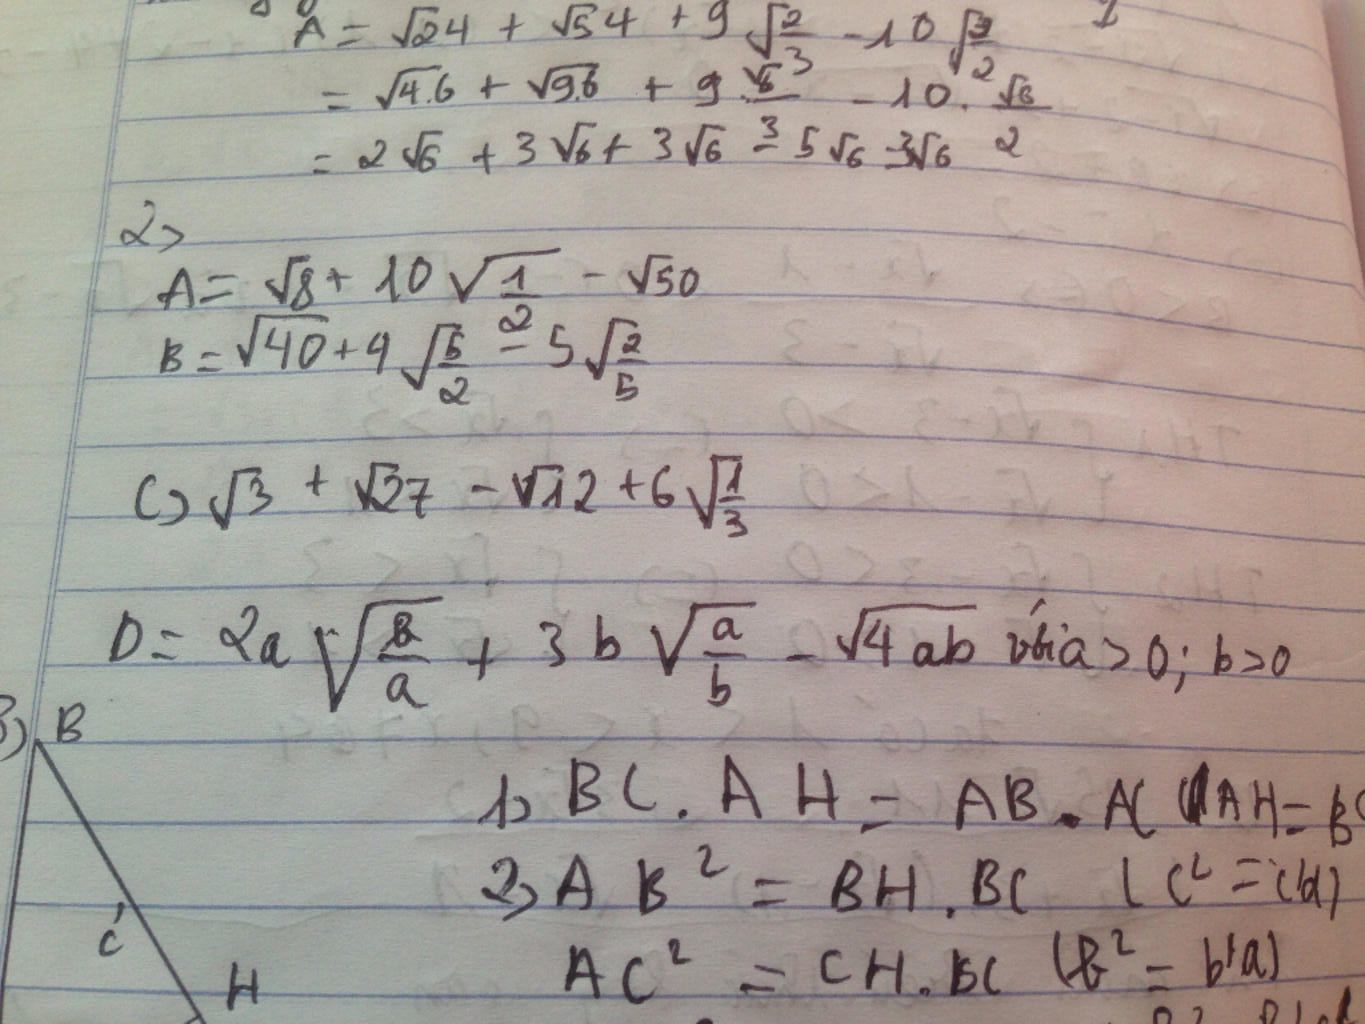 A = √24 + √54 + 9 √2/3 - 10 √3/2
= √4.6 + √9.6 + 9 . √6/3 - 10 . √6/2
= 2√6 + 3√6 + 3√6 - 5√6 = 3√6
2>
A = √8 + 10 √1/2 - √50
B = √40 + 4 √5/2 - 5 √2/5
C) √3 + √27 - √12 + 6 √1/3
D = 2a √B/a + 3b √a/b - √4ab với a > 0; b > 0
3) B
1) BC . AH = AB . AC ( AH = BC
2) AB² = BH . BC ( C² = c'a)
c'
AC² = CH . BC (b² = b'a)
H